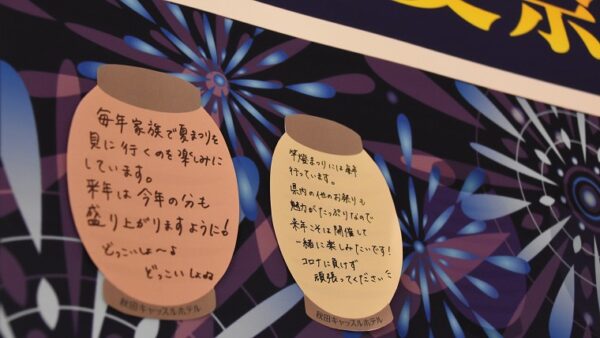 毎年家族で夏まつりを
見に行くのを楽しみに
しています。
来年は今年の分も
盛り上がりますように!
どっこいしょ〜よ
どっこいしょ
秋田キャッスルホテル
竿燈まつりには毎年
行っています。
県内の他のお祭りも
魅力がたっぷりなので
来年こそは開催して
一緒に楽しみたいです!
コロナに負けず
頑張ってください
秋田キャッスルホテル